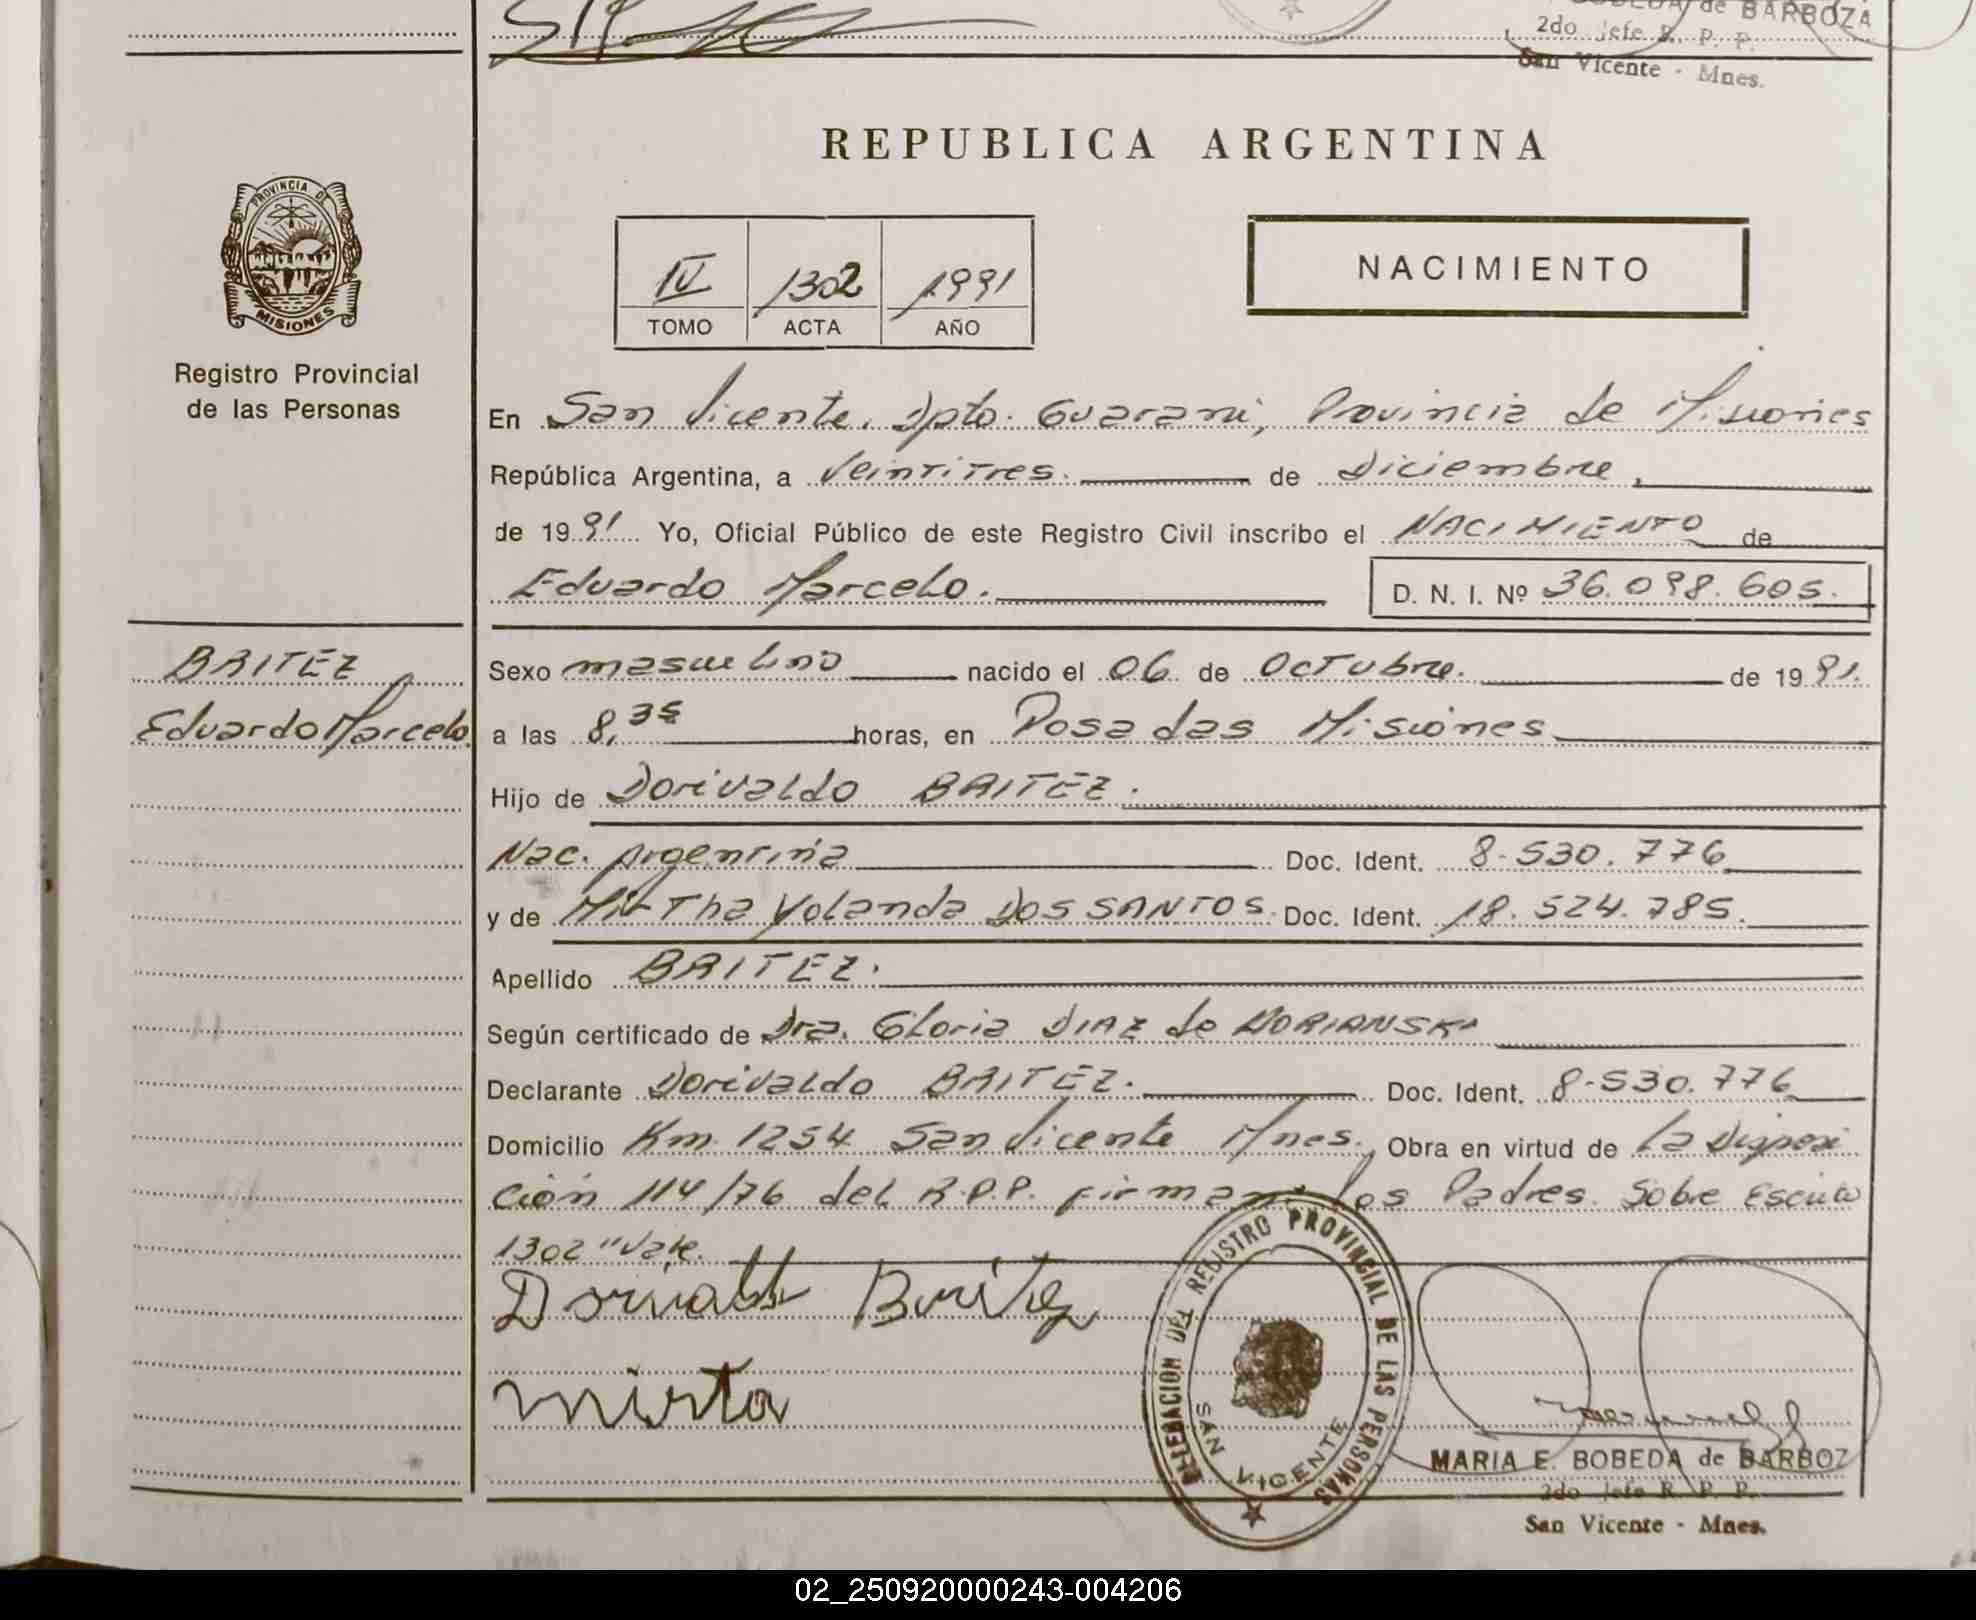 de BARBOZA
2do Jefe R. P. P.
San Vicente - Mnes.
REPUBLICA ARGENTINA
PROVINCIA DE
MISIONES
Registro Provincial
de las Personas
IV 1302 1991
TOMO ACTA AÑO
NACIMIENTO
En San Vicente, Dpto. Guarani, Provincia de Misiones
República Argentina, a Veintitres. de Diciembre,
de 1991 Yo, Oficial Público de este Registro Civil inscribo el NACIMIENTO de
Eduardo Marcelo. D. N. I. Nº 36.098.605.
BRITEZ
Eduardo Marcelo.
Sexo masculino nacido el 06 de Octubre. de 1991.
a las 8,35 horas, en Posadas Misiones
Hijo de Dorivaldo BRITEZ.
Nac. Argentina Doc. Ident. 8-530.776
y de Mirtha Yolanda DOS SANTOS. Doc. Ident. 18.524.785.
Apellido BRITEZ.
Según certificado de Dra. Gloria DIAZ de DORIANSKI
Declarante Dorivaldo BRITEZ. Doc. Ident. 8-530.776
Domicilio Km. 1254 San Vicente Mnes. Obra en virtud de La Disposi
ción 114/76 del R.P.P. firman los Padres. Sobre Escrito
1302 "Vale.
Dorivaldo Britez
mirta
DELEGACION DEL REGISTRO PROVINCIAL DE LAS PERSONAS
SAN VICENTE
MARIA E. BOBEDA de BARBOZ
2do Jefe R. P. P.
San Vicente - Mnes.
02_250920000243-004206